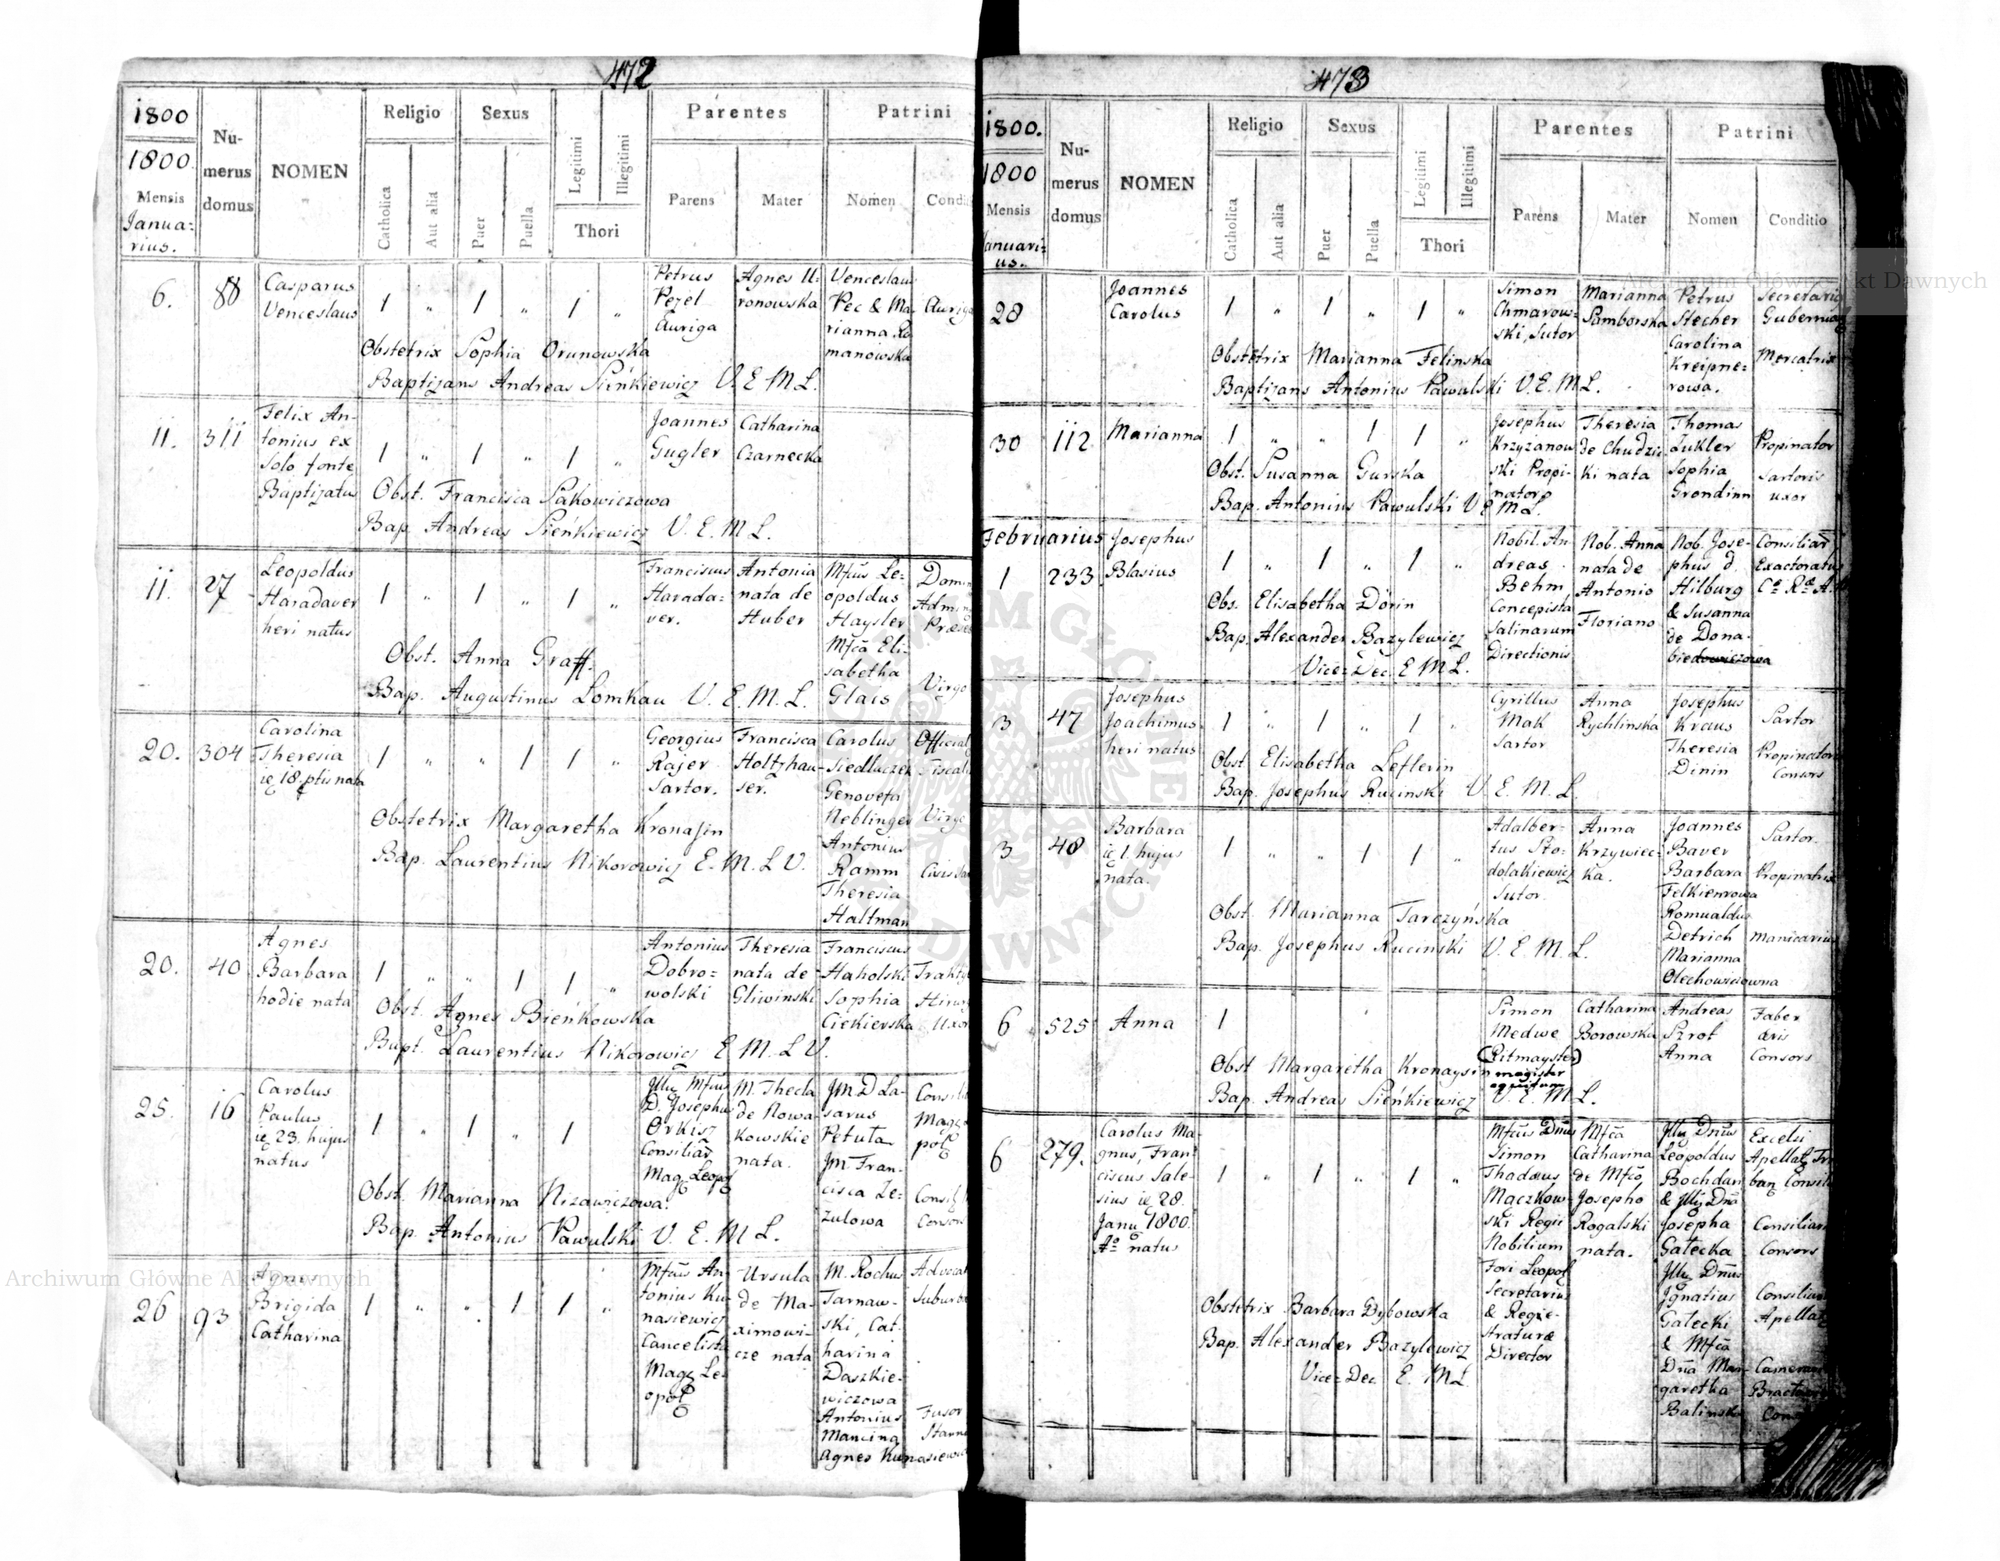 472
1800
1800.
Mensis
Janua:
rius.
Nu-
merus
domus
NOMEN
Religio
Catholica
Aut alia
Sexus
Puer
Puella
Legitimi
Illegitimi
Thori
Parentes
Parens
Mater
Patrini
Nomen
6.
88
Casparus
Venceslaus
1 " 1 " 1 "
Petrus
Pezel
Auriga
Agnes U=
ronowska
Venceslaus
Pec & Ma
rianna Ro
manowska
Auriga
Obstetrix Sophia Orunowska
Baptizans Andreas Sieńkiewicz V. E. M L.
11.
311
Felix An-
tonius ex
solo fonte
Baptizatus
1 " 1 " 1 "
Joannes
Gugler
Catharina
Czarnecka
Obst. Francisca Sakowiczowa
Bap. Andreas Sienkiewicz V. E. M L.
11.
27
Leopoldus
Haradaver
heri natus
1 " 1 " 1 "
Franciscus
Harada=
ver.
Antonia
nata de
Huber
Mfcus Le-
opoldus
Haysler
Mfca Eli-
sabetha
Glais
Virgo
Obst. Anna Graff.
Bap. Augustinus Lomkau V. E. M. L.
20.
304
Carolina
Theresia
ie 18. ptis nata
1 " " 1 1 "
Georgius
Rajer
Sartor.
Francisca
Holtzhau-
ser.
Carolus
Siedluczek
Genovefa
Neblinger
Antonius
Ramm
Theresia
Haltman
Virgo
Obstetrix Margaretha Kronasin
Bap. Laurentius Nikorowicz E. M. L V.
20.
40
Agnes
Barbara
hodie nata
1 " " 1 1 "
Antonius
Dobro=
wolski
Theresia
nata de
Gliwinski
Franciscus
Haholski
Sophia
Ciekierska
Obst. Agnes Bieńkowska
Bapt. Laurentius Nikorowicz E M. L V.
25.
16
Carolus
Paulus
ie 23. hujus
natus
1 " 1 " 1
Jll Mfcus
D. Josephus
Orkisz
Consiliar
Mag Leopol
M. Thecla
de Nowa
kowskie
nata.
JM. D La-
sarus
Petula
JM. Fran-
cisca Ze-
zulowa
Obst. Marianna Nizawiczowa.
Bap. Antonius Pawulski V. E. M L.
26
93
Agnes
Brigida
Catharina
1 " " 1 1 "
Mfcus An
tonius Ku-
nasiewicz
Cancelista
Mag Le-
opol
Ursula
de Ma-
ximowi-
cze nata
M. Rochus
Tarnaw-
ski, Cat-
harina
Daszkie-
wiczowa
Antonius
Mancina
Agnes Kunasiewicz
473
1800.
1800
Mensis
Januari=
us.
Nu-
merus
domus
NOMEN
Religio
Catholica
Aut alia
Sexus
Puer
Puella
Legitimi
Illegitimi
Thori
Parentes
Parens
Mater
Patrini
Nomen
Conditio
28
Joannes
Carolus
1 " 1 " 1 "
Simon
Chmarow-
ski, Sutor
Marianna
Samborska
Petrus
Stecher
Carolina
Kreipne-
rowa.
Mercatrix
Obstetrix Marianna Felinska
Baptizans Antonius Pawulski V. E. M L.
30
112
Marianna
1 " " 1 1 "
Josephus
Krzyżanow
ski Propi-
nator
Theresia
de Chudzic
ki nata
Thomas
Zukler
Sophia
Grondinn
Propinator
Sartoris
uxor
Obst. Susanna Gurska
Bap. Antonius Pawulski V E M L.
Februarius
1
233
Josephus
Blasius
1 " 1 " 1 "
Nobil. An-
dreas
Behm
Concepista
Salinarum
Directionis
Nob. Anna
nata de
Antonio
Floriano
Nob. Jose-
phus d.
Hilburg
& Susanna
de Dona-
Obs. Elisabetha Dörin
Bap. Alexander Bazylewicz
Vice Dec. E M L.
3
47
Josephus
Joachimus
heri natus
1 " 1 " 1 "
Cyrillus
Mak
Sartor
Anna
Rychlinska
Josephus
Kraus
Theresia
Dinin
Sartor
Propinator
Consors
Obst Elisabetha Leflerin
Bap. Josephus Rucinski V. E. M. L.
3
48
Barbara
ie 1. hujus
nata.
1 " " 1 1 "
Adalber=
tus Sto-
dolakiewicz
Sutor
Anna
Krzywiec-
ka.
Joannes
Baver
Barbara
Felkierowa
Romualdus
Detrich
Marianna
Olechowiczowna
Sartor
Propinatrix
Manicarius
Obst. Marianna Tarczyńska
Bap. Josephus Rucinski V. E. M. L.
6
525
Anna
1
Simon
Medwe
(Ritmayster)
magister
equitum
Catharina
Borowska
Andreas
Szrot
Anna
Faber
æris
Consors
Obst Margaretha Kronaysin
Bap. Andreas Sieńkiewicz V. E. M L.
6
279.
Carolus Ma-
gnus, Fran-
ciscus Sale-
sius ie 28.
Janu 1800.
Ao natus
1 " 1 " 1 "
Mfcus Dnus
Simon
Thadaeus
Mączkow-
ski Regii
Nobilium
Fori Leopol
Secretarius
& Regie-
straturæ
Director
Mfca
Catharina
de Mfco
Josepho
Rogalski
nata.
Jll Dnus
Leopoldus
Bochdan
& Jll Dna
Josepha
Gałecka
Jll Dnus
Ignatius
Gałecki
& Mfca
Dna Mar-
garetha
Balinska
Excelsi
Consors
Obstetrix Barbara Dybowska
Bap. Alexander Bazylewicz
Vice Dec E. M L.
Archiwum Główne Akt Dawnych
Archiwum Główne Akt Dawnych